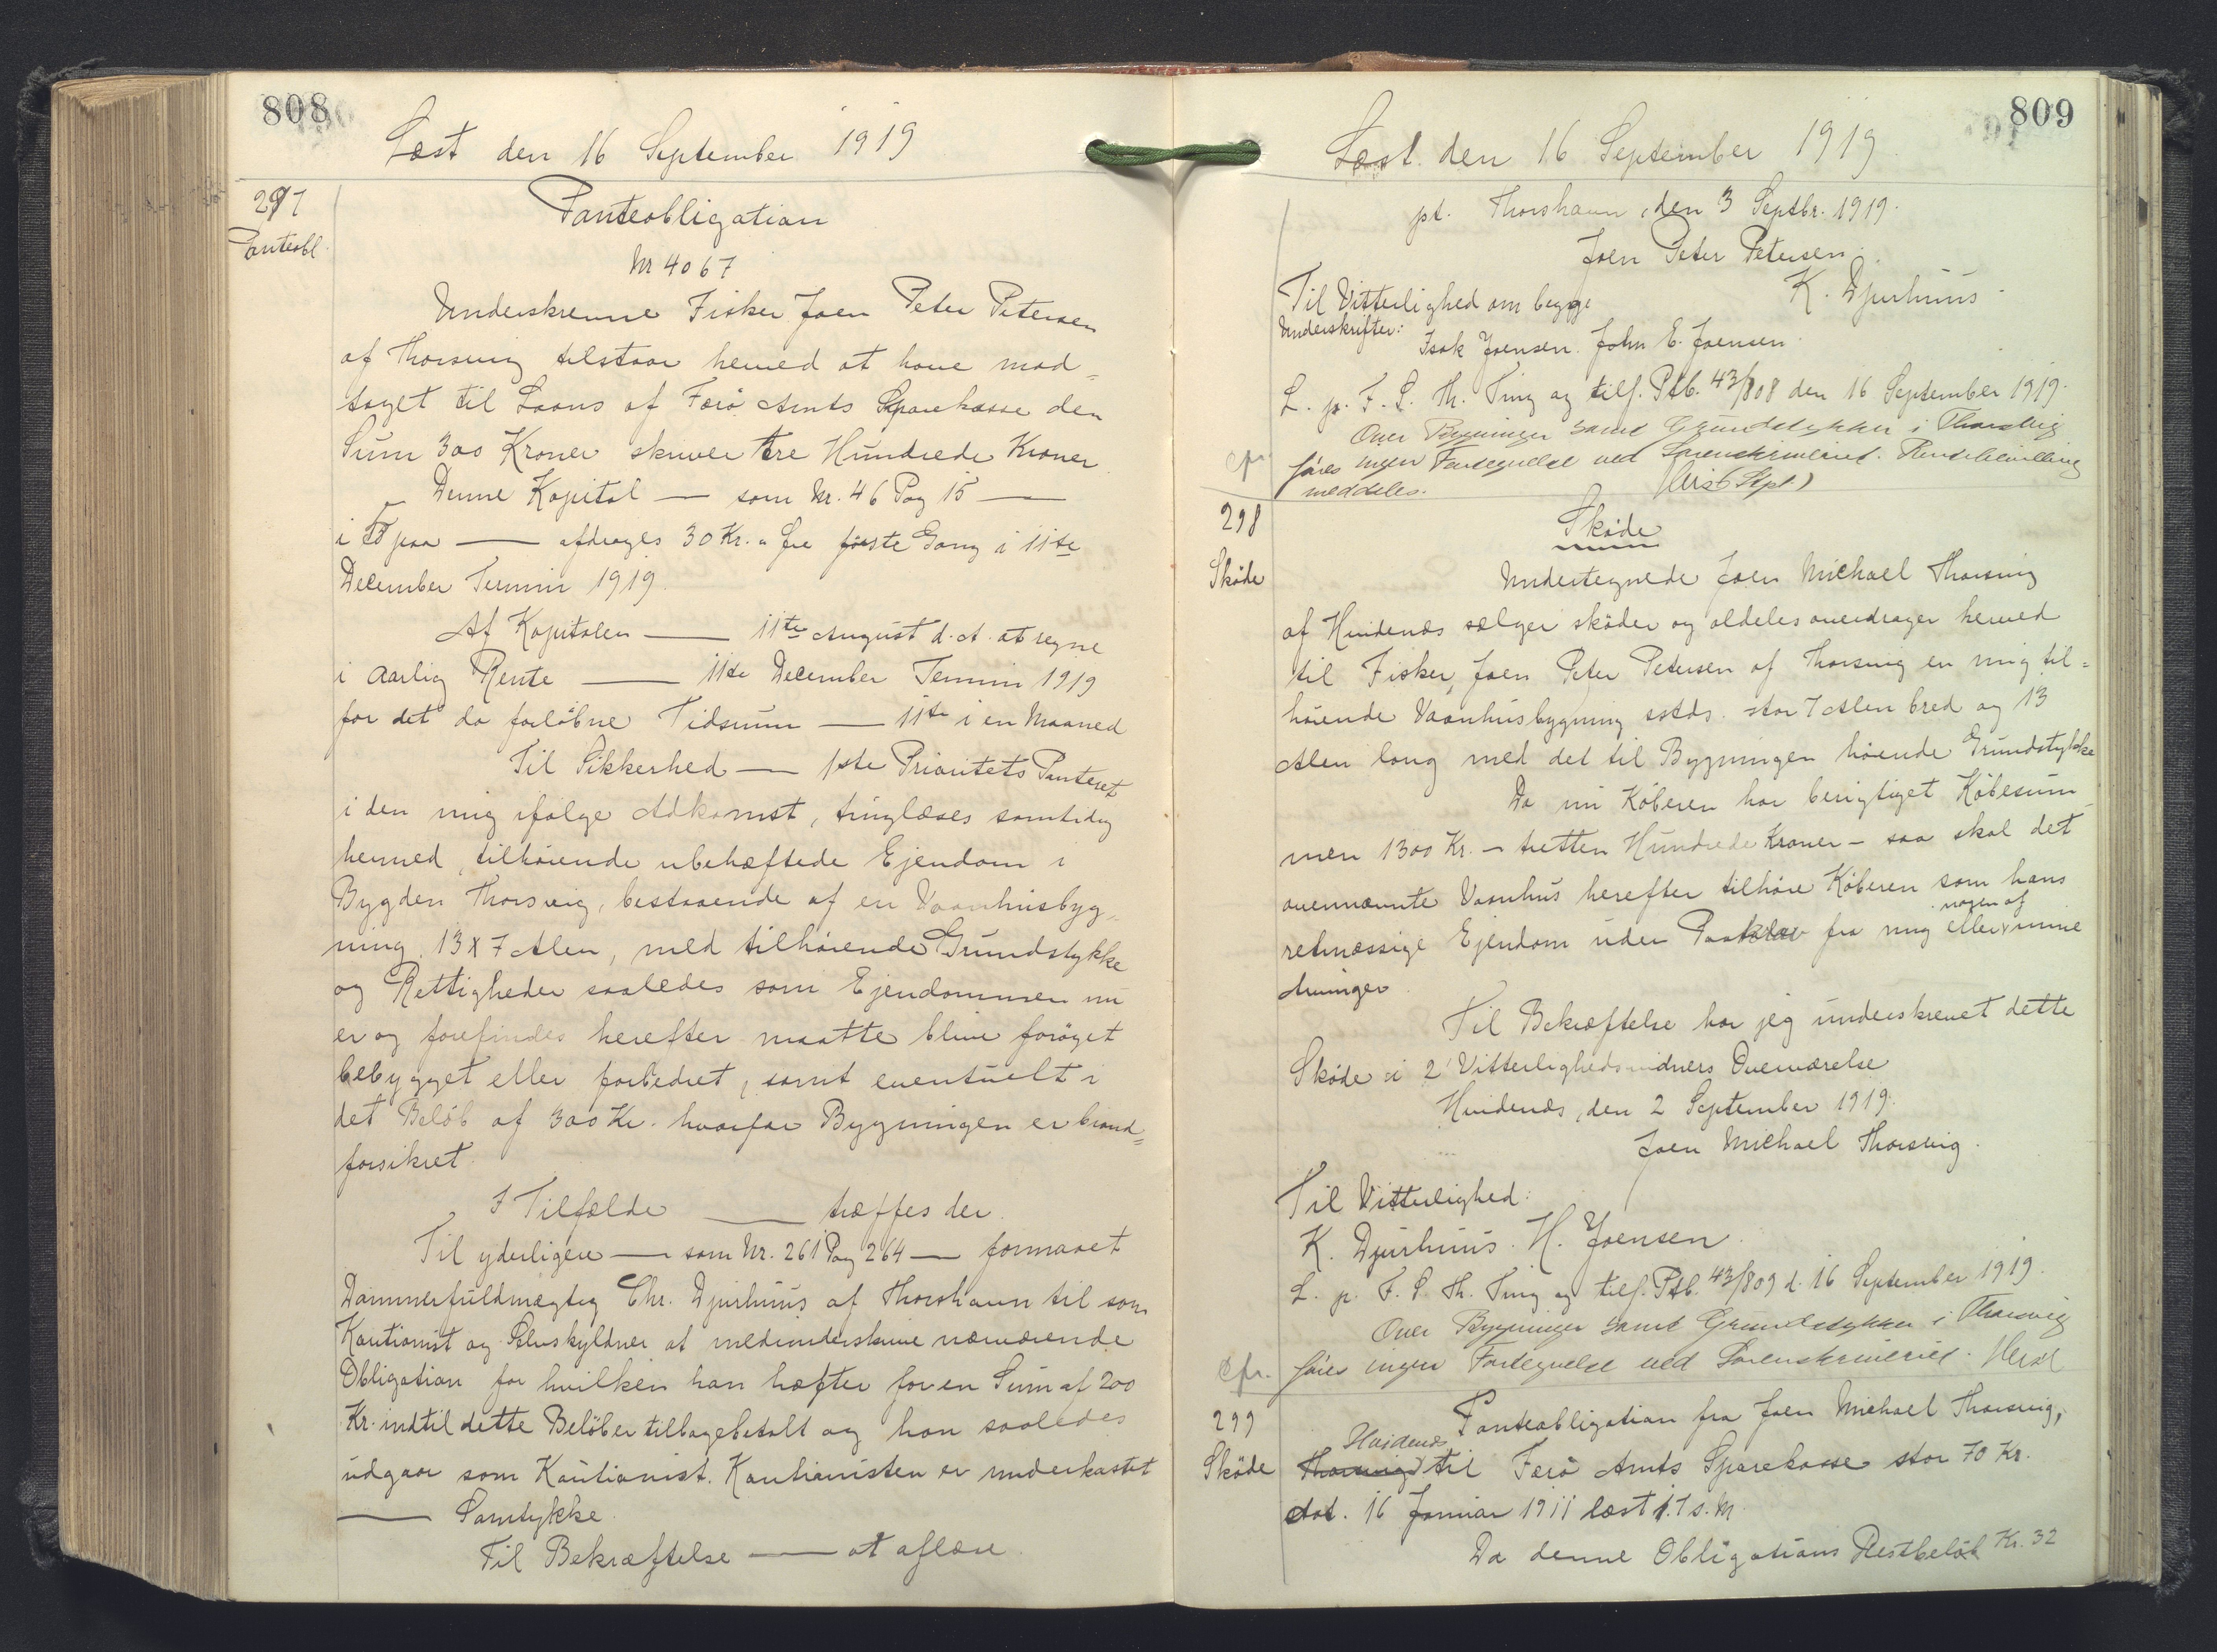 808
Læst den 16 September 1919
297
Panteobl.
Panteobligation
Nr 4067
Underskrevne Fisker Joen Peter Petersen
af Thorsvig tilstaar herved at have mod=
taget til Laans af Færø Amts Sparekasse den
Sum 300 Kroner skriver tre Hundrede Kroner
Denne Kapital — som Nr. 46 Pag 15 —
i paa — afdrages 30 Kr. første Gang i 11te
December Termin 1919.
Af Kapitalen — 11te August d. A. at regne
i aarlig Rente — 11te December Termin 1919
for det da forløbne Tidsrum — 11te i en Maaned
Til Sikkerhed — 1ste Prioritets Panteret
i den mig ifølge Adkomst, tinglæses samtidig
hermed, tilhørende ubehæftede Ejendom i
Bygden Thorsvig, bestaaende af en Vaanhusbyg=
ning 13 x 7 Alen, med tilhørende Grundstykke
og Rettigheder saaledes som Ejendommen nu
er og forefindes herefter maatte blive forøget
bebygget eller forbedret, samt eventuelt i
det Beløb af 300 Kr. hvorfor Bygningen er brand=
forsikret.
I Tilfælde — træffes der.
Til yderligere — som Nr. 261 Pag 264 — formaaet
Dommerfuldmægtig Chr. Djurhuus af Thorshavn til som
Kautionist og Selvskyldner at medunderskrive nærværende
Obligation for hvilken han hæfter for en Sum af 200
Kr. indtil dette Beløb er tilbagebetalt og han saaledes
udgaar som Kautionist. Kautionisten er underkastet
— Samtykke.
Til Bekræftelse — at aflæse
809
Læst den 16 September 1919.
pt. Thorshavn, den 3 Septbr. 1919.
Joen Peter Petersen.
K. Djurhuus.
Til Vitterlighed om begge
Underskrifter:
Isak Joensen. John E. Joensen.
L. p. F. S. Th. Ting og tilf. Ptb. 43/808 den 16 September 1919.
Over Bygninger samt Grundstykker i Thorsvig
cfr. føres ingen Fortegnelse ved Sorenskriveriet. Rentebevilling
meddeles.
(Stpl.)
298
Skøde
Skøde
Undertegnede Joen Michael Thorsvig
af Hvidenæs sælger skøder og aldeles overdrager herved
til Fisker, Joen Peter Petersen af Thorsvig en mig til=
hørende Vaanhusbygning sstds. stor 7 Alen bred og 13
Alen lang med det til Bygningen hørende Grundstykke
Da nu Køberen har berigtiget Købesum
men 1300 Kr. – tretten Hundrede Kroner – saa skal det
ovennævnte Vaanhus herefter tilhøre Køberen som hans
retmæssige Ejendom uden Paakrav fra mig eller nogen af mine
Arvinger.
Til Bekræftelse har jeg underskrevet dette
Skøde i 2 Vitterlighedsvidners Overværelse
Hvidenæs, den 2 September 1919.
Joen Michael Thorsvig.
Til Vitterlighed:
K. Djurhuus. H. Joensen.
L. p. F. S. Th. Ting og tilf. Ptb. 43/809 d. 16 September 1919.
Over Bygninger samt Grundstykker i Thorsvig
cfr. føres ingen Fortegnelse ved Sorenskriveriet.
299
Skøde
Panteobligation fra Joen Michael Thorsvig,
Hvidenæs
Thorsvig til Færø Amts Sparekasse stor 70 Kr.
dat. 16 Januar 1911 læst 17 s. M.
Da denne Obligations Restbeløb Kr. 32